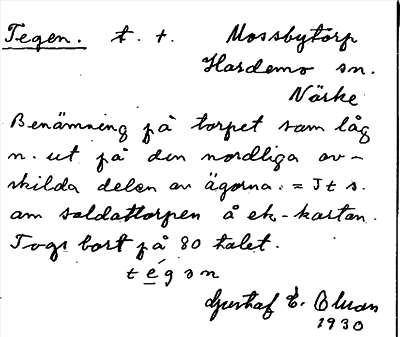 Tegen. t. t. Mossbytorp
Hardemo sn.
Närke
Benämning på torpet som låg
n. ut på den nordliga av-
skilda delen av ägorna. = J t s.
om soldattorpen å ek.-kartan.
Togs bort på 80 talet.
Gustaf E.
1930